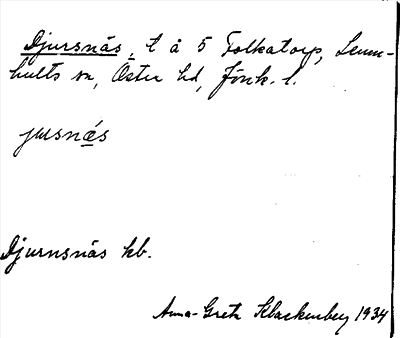 Djursnäs, t å 5 Folkatorp, Lemn-
hults sn, Östra hd, Jönk. l.
jursnä́s
Djurnsnäs kb.
Anna-Greta Klackenberg 1934